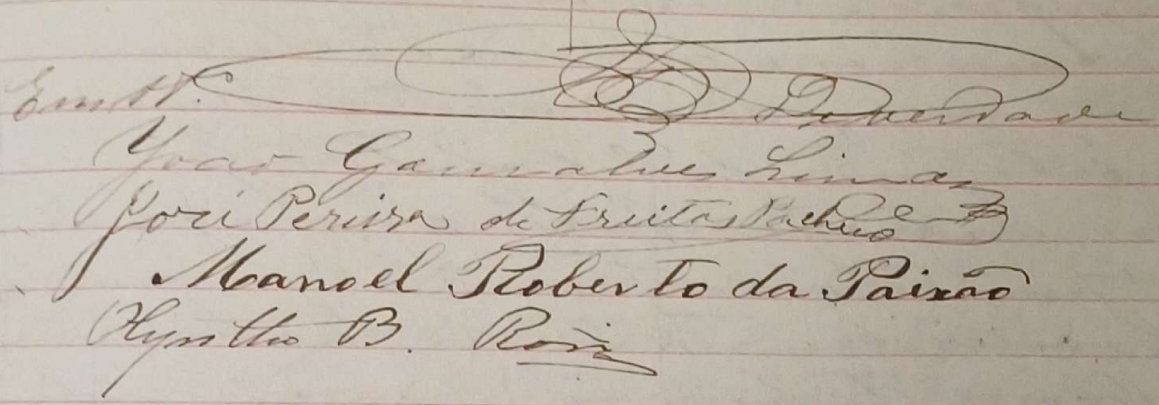 Em tt.º de verdade
João Gonsalves Lima
José Pereira de Freitas Pacheco
Manoel Roberto da Paixão
B. Roiz